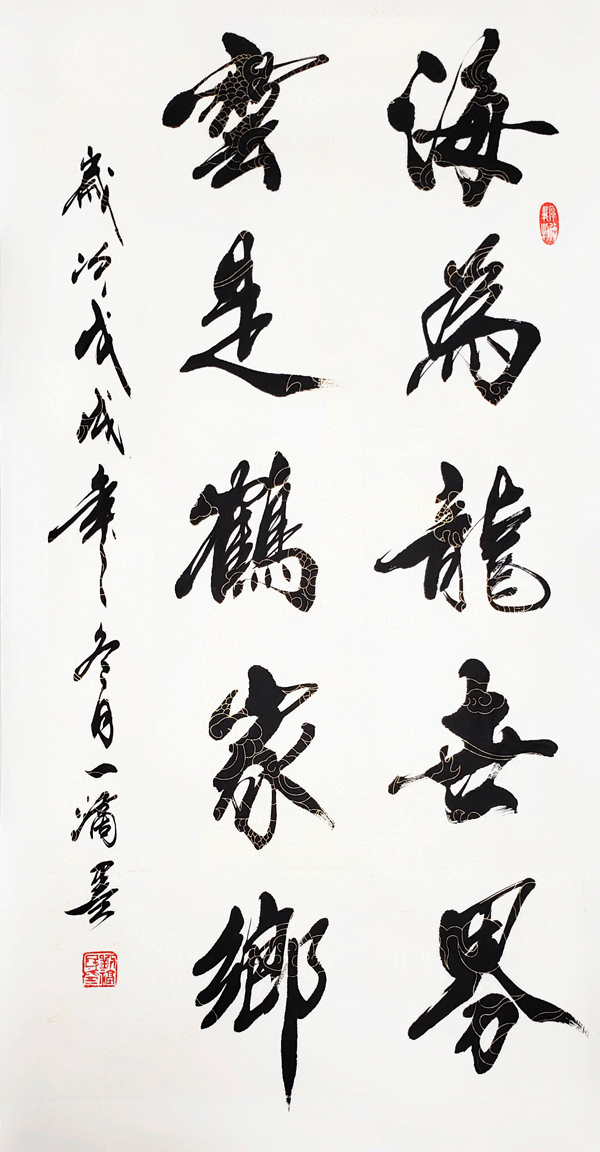 海為龍世界
雲是鶴家鄉
歲次戊戌年冬月一滴墨